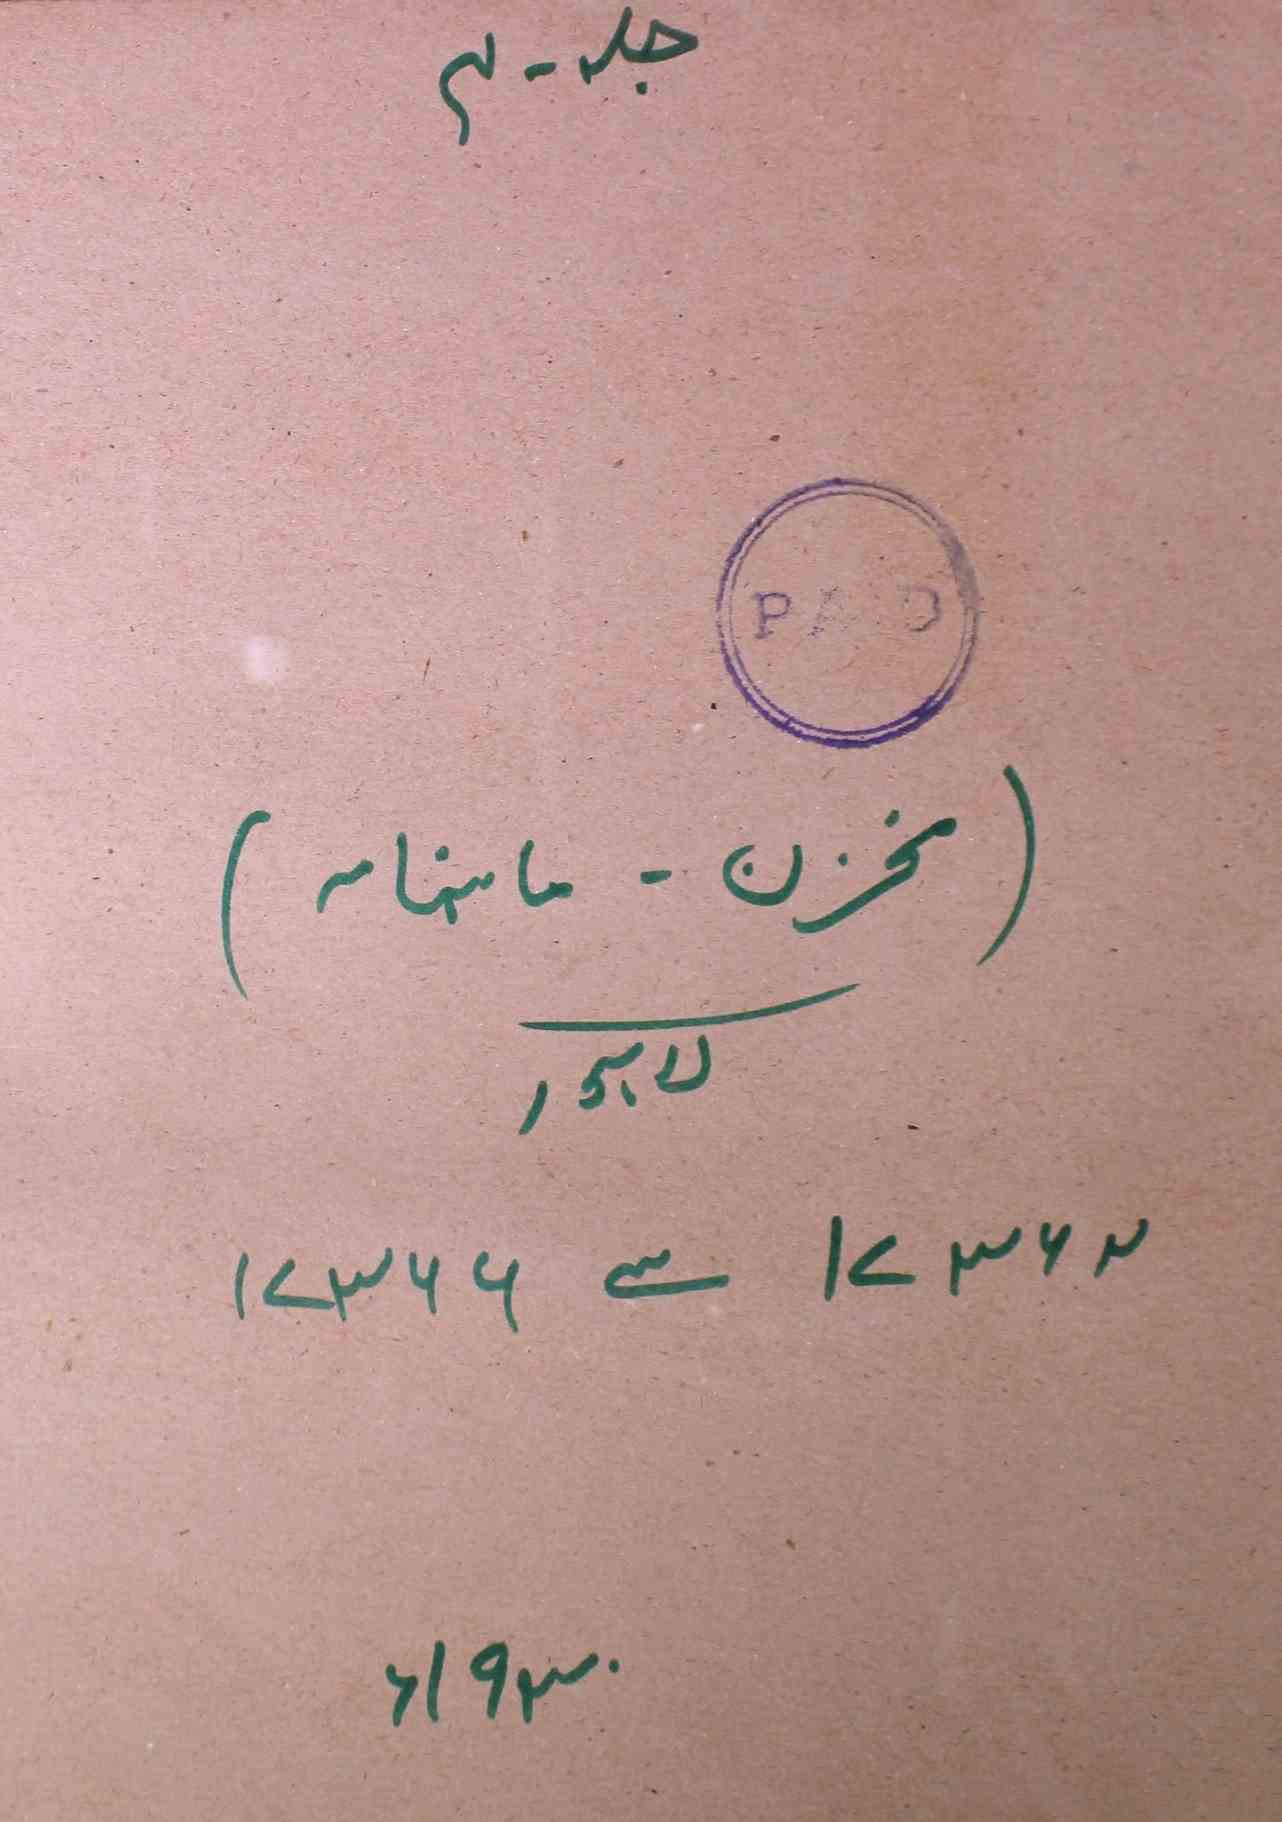 جلد - ۴
PAID
(مخزن - ماہنامہ)
لاہور
۱۷۳۶۲ سے ۱۷۳۶۶
۱۹۳۰ء